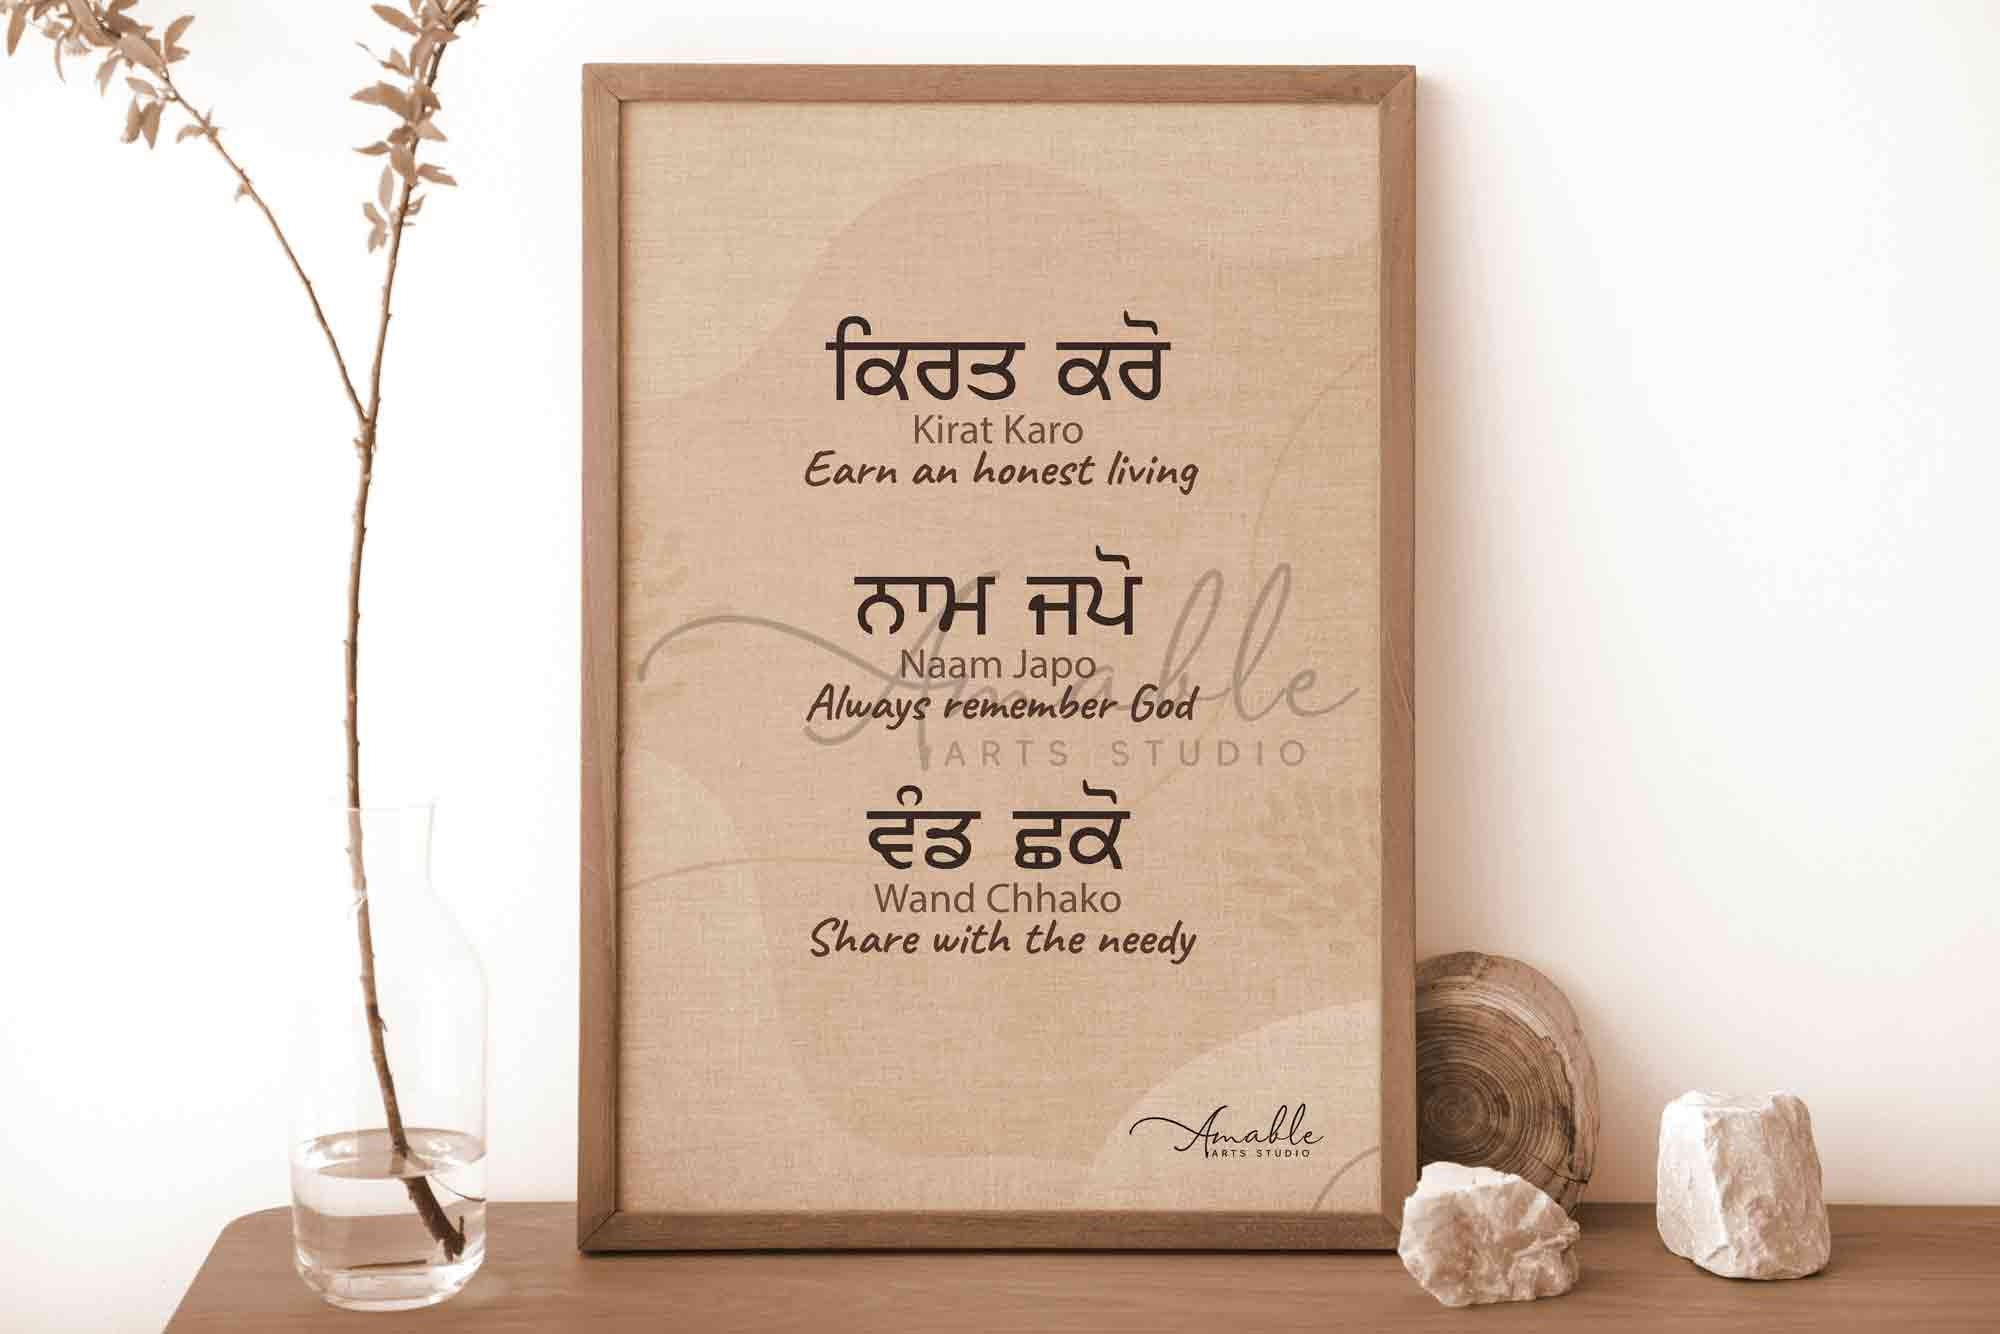 ਕਿਰਤ ਕਰੋ
Kirat Karo
Earn an honest living
ਨਾਮ ਜਪੋ
Naam Japo
Always remember God
Amable
ARTS STUDIO
ਵੰਡ ਛਕੋ
Wand Chhako
Share with the needy
Amable
ARTS STUDIO